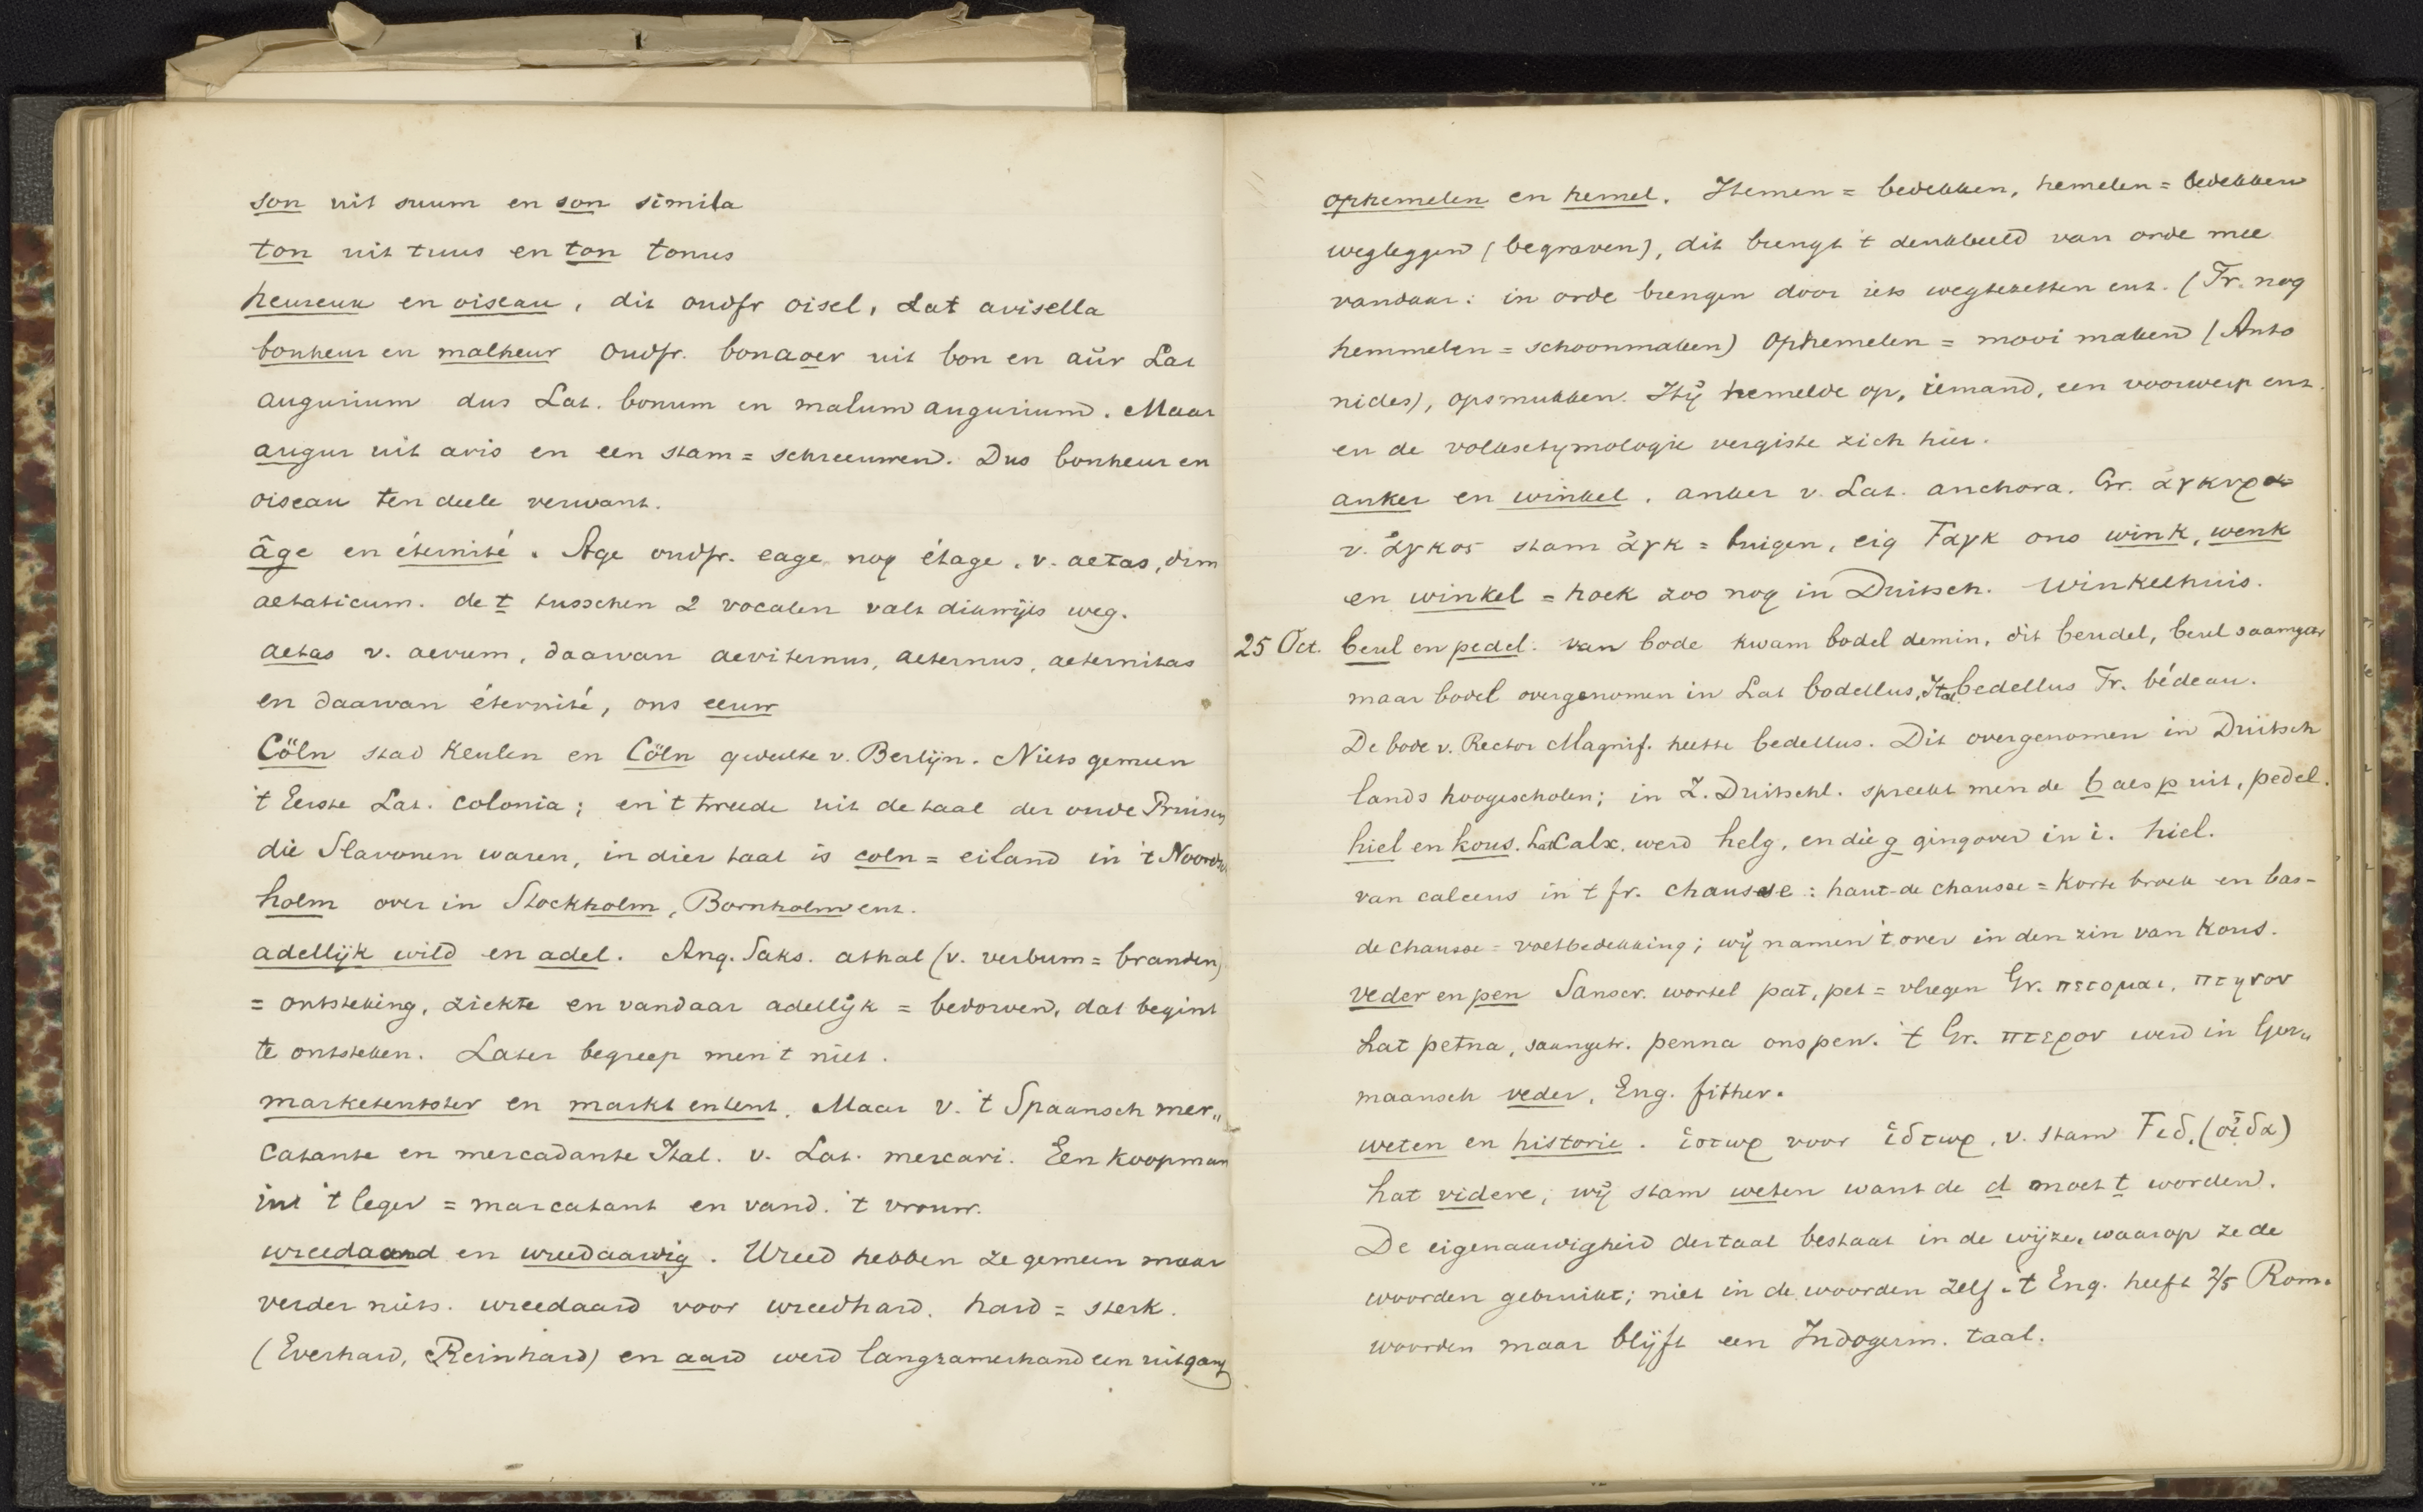 son uit suum en son simila
ton uit tuus en ton tonus
heureux en oiseau, dit oudfr oisel, Lat avisella
bonheur en malheur oudfr. bonaoer uit bon en aür Lat
augurium dus Lat. bonum en malum augurium. Maar
augur uit avis en een stam = schreeuwen. Dus bonheur en
oiseau ten deele verwant.
âge en éternité. Age oudfr. eage nog étage. v. aetas, dim
aetaticum. de t tusschen 2 vocalen valt dikwijls weg.
aetas v. aevum, daarvan aeviternus, aeternus, aeternitas
en daarvan éternité, ons eeuw
Cöln stad Keulen en Cöln gedeelte v. Berlijn. Niets gemeen
't Eerste Lat. colonia; en 't tweede uit de taal der oude Pruisen
die Slavonen waren, in dier taal is coln = eiland in 't Noordsch
holm over in Stockholm, Bornholm enz.
adellijk wild en adel. Ang. Saks. athal (v. verbum = branden)
= ontsteking, ziekte en vandaar adellijk = bedorven, dat begint
te ontsteken. Later begreep men 't niet.
marketentster en markt en tent. Maar v. 't Spaansch mer„
catante en mercadante Ital. v. Lat. mercari. Een koopman
in 't leger = marcatant en vand. 't vrouw.
wreedaard en wreedaardig. Wreed hebben ze gemeen maar
verder niets. wreedaard voor wreedhard. hard = sterk.
(Everhard, Reinhard) en aard werd langzamerhand een uitgang
ophemelen en hemel. Hemen = bedekken, hemelen = bedekken
wegleggen (begraven), dit brengt 't denkbeeld van orde mee
vandaar: in orde brengen door iets wegtezetten enz. (Fr. nog
hemmelen = schoonmaken) Ophemelen = mooi maken (Anto
nides), opsmukken. Hij hemelde op, iemand, een voorwerp enz.
en de volksetymologie vergiste zich hier.
anker en winkel. anker v. Lat. anchora. Gr. ἀγκυρα
v. ἀγκος stam ἀγκ = buigen, eig Ϝαγκ ons wink, wenk
en winkel = hoek zoo nog in Duitsch. Winkelhuis.
25 Oct. beul en pedel. van bode kwam bodel demin. dit beudel, beul saamgetr
maar bodel overgenomen in Lat bodellus, Ital bedellus Fr. bédeau.
De bode v. Rector Magnif. heette bedellus. Dit overgenomen in Duitsch
lands hoogescholen; in Z. Duitschl. spreekt men de b als p uit, pedel.
hiel en kous. Lat Calx. werd helg, en die g ging over in i. hiel.
van calceus in 't fr. chausse: haut-de chausse = korte broek en bas-
de chausse = voetbedekking; wij namen 't over in den zin van Kous.
veder en pen Sanscr. wortel pat, pet = vliegen Gr. πετομαι, πτηνον
Lat petna, saamgetr. penna ons pen. 't Gr. πτερον werd in Ger„
maansch veder, Eng. fither.
weten en historie. ἱστωρ voor ἱδτωρ. v. stam Ϝιδ. (οἶδα)
Lat videre; wij stam weten want de d moet t worden.
De eigenaardigheid der taal bestaat in de wijze, waarop ze de
woorden gebruikt; niet in de woorden zelf. 't Eng. heeft 2/5 Rom.
woorden maar blijft een Indogerm. taal.